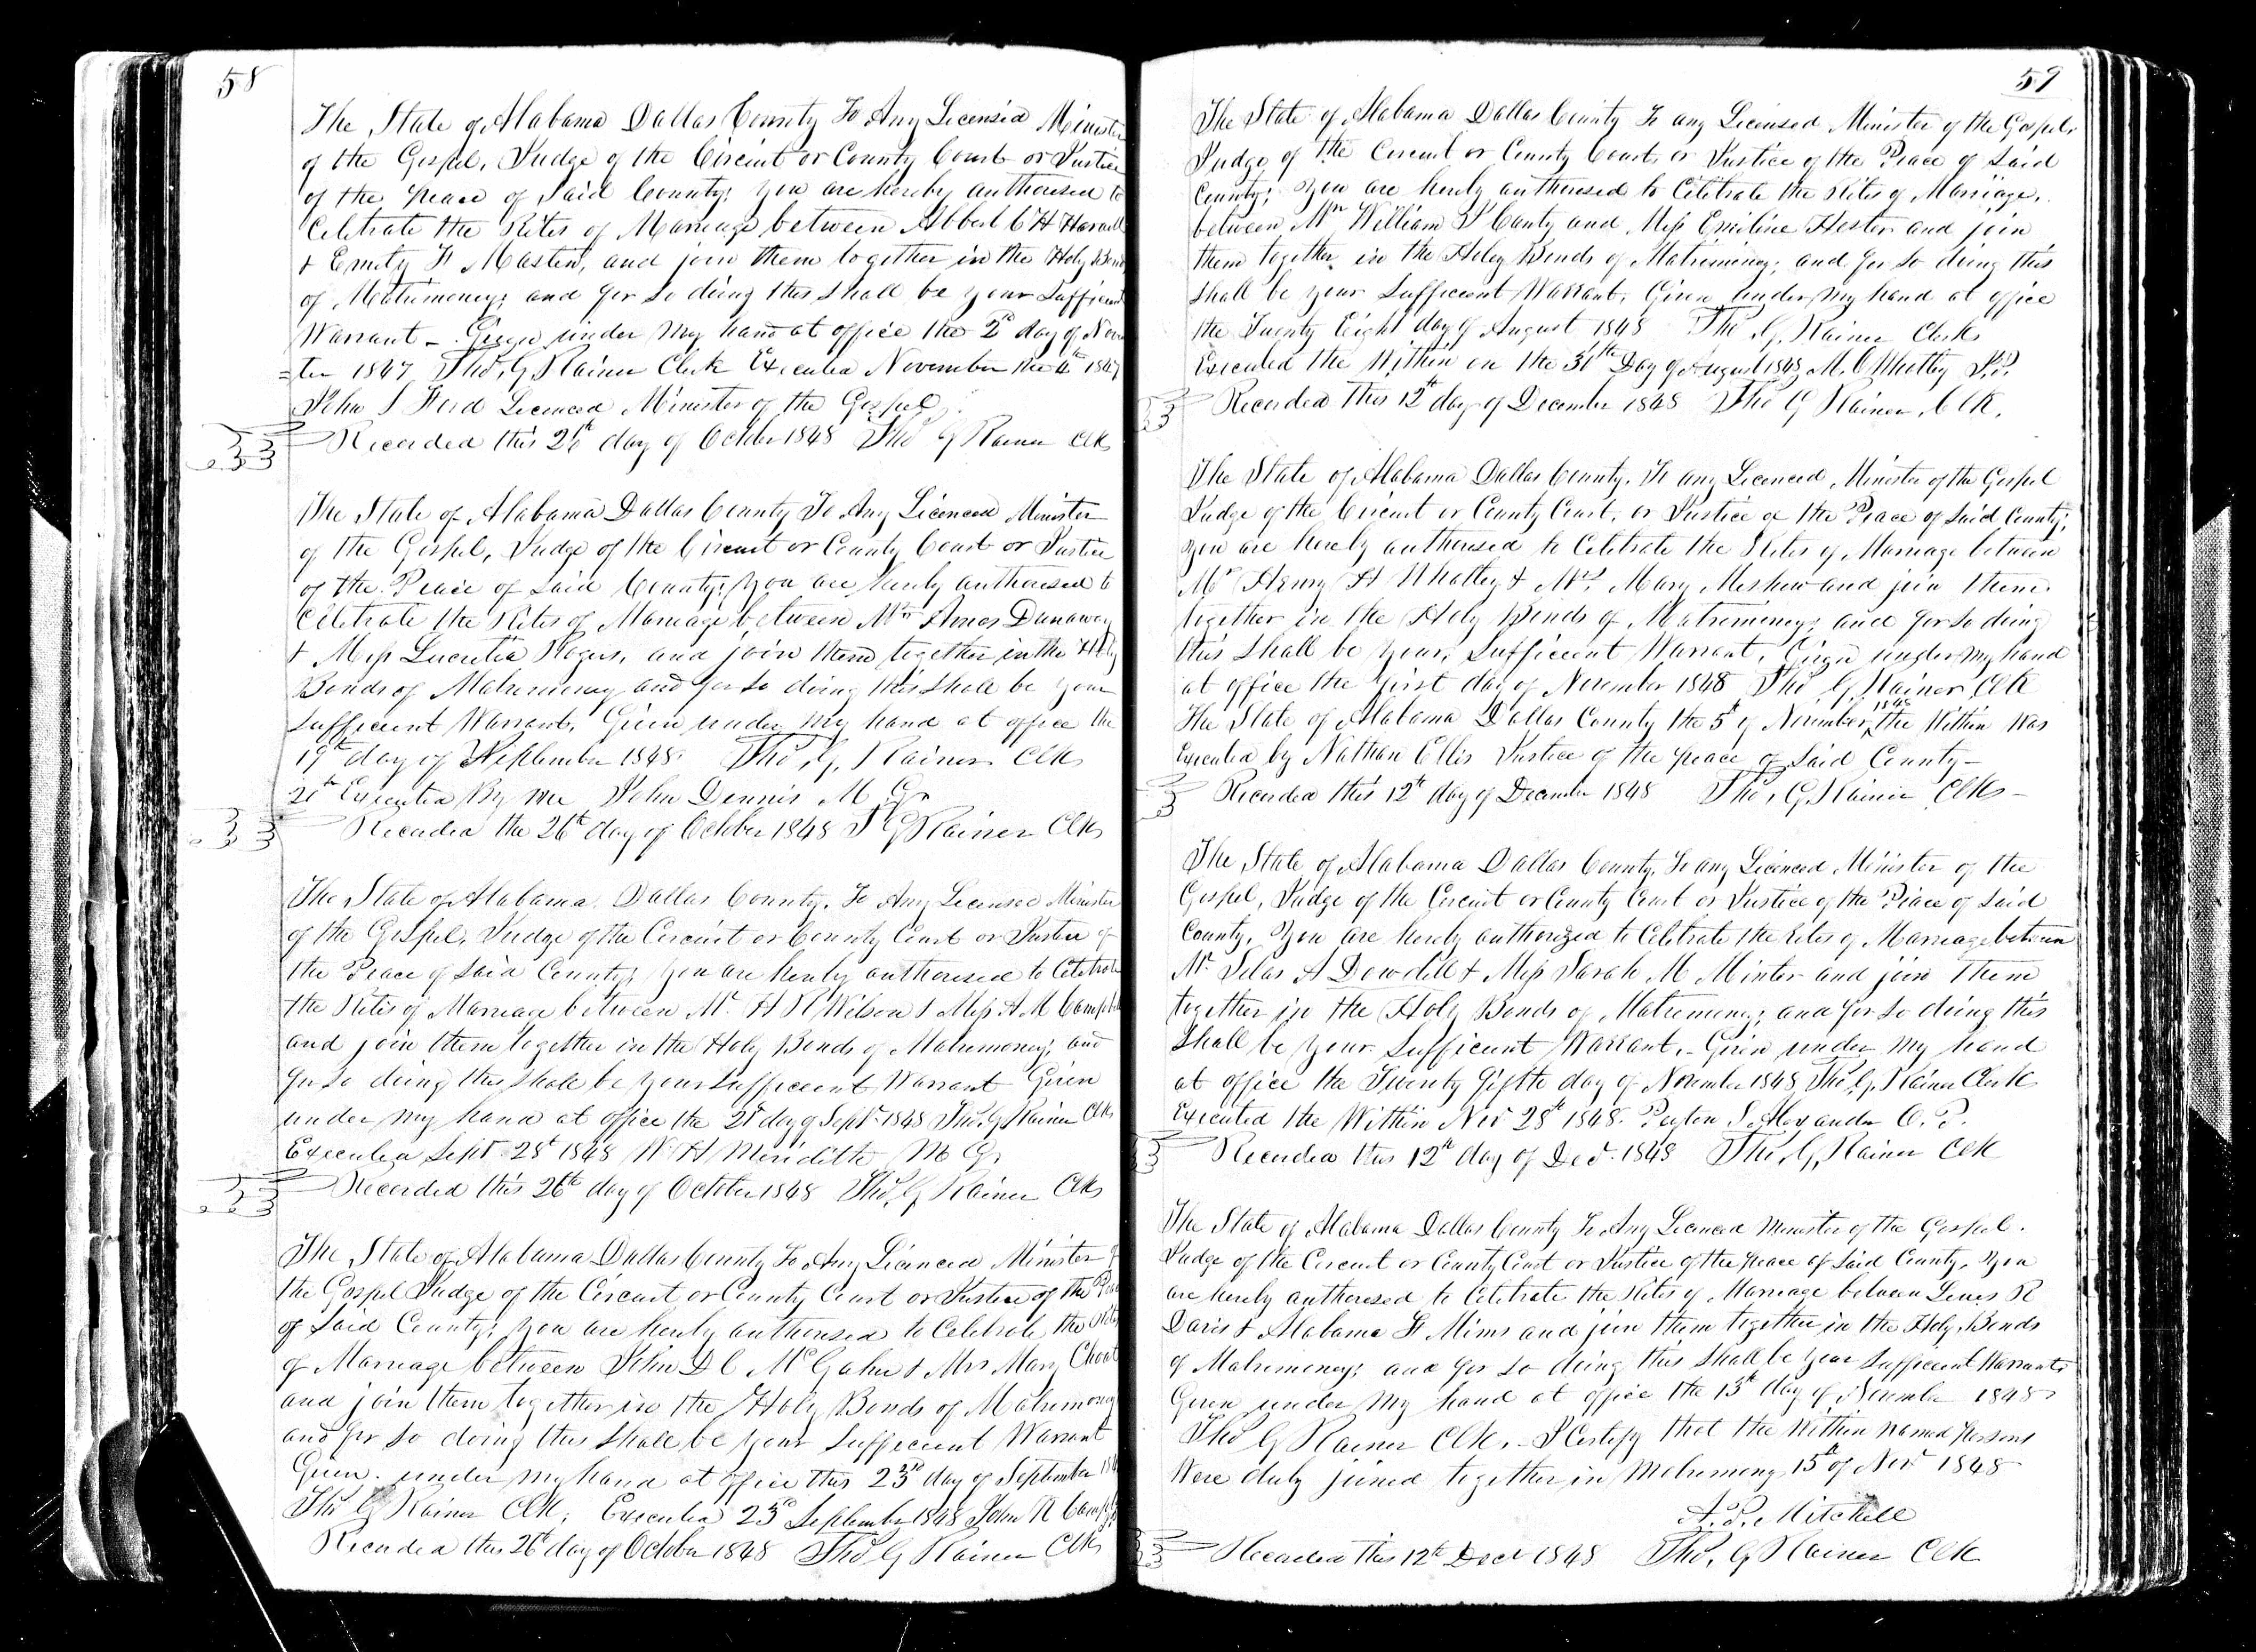 58
The State of Alabama Dallas County To Any Licensed Minister
of the Gospel, Judge of the Circuit or County Court or Justice
of the peace of Said County; you are hereby authorised to
Celebrate the Rites of Marriage between Albert C H
& Emily F Mastin, and join them together in the Holy Bonds
of Matrimoney; and for so doing this shall be your Sufficient
Warrant - Given under my hand at office the 2d day of Novem
=ber 1847 Thos, G, Rainer Clerk Executed November the 4th 1847
John S Ford Licenced Minister of the Gospel
Recorded this 26th day of October 1848 Tho G Rainer Clk
The State of Alabama Dallas County To Any Licenced Minister
of the Gospel, Judge of the Circuit or County Court or Justice
of the Peace of Said County; you are hereby authorised to
Celebrate the Rites of Marriage between Mr Amos Dunaway
& Miss Lucretia Rogers, and join them together in the Holy
Bonds of Matrimoney and for so doing this shall be your
sufficient Warrant, Given under my hand at office the
19th day of September 1848. Tho, G, Rainer Clk
20th Executed By me John Dennis M G
Recorded the 26th day of October 1848 T G Rainer Clk
The State of Alabama, Dallas County, To Any Licensed Minister
of the Gospel, Judge of the Circuit or County Court or Justice of
the Peace of Said County; you are hereby authorised to Celebrate
the Rites of Marriage between Mr H R Wilson & Miss A M Campbell
and join them together in the Holy Bonds of Matrimoney; and
for so doing this shall be your sufficient Warrant Given
under my hand at office the 21st day of Sept 1848 Tho, G, Rainer Clk
Executed Sept 28th 1848 W H Meridith M G,
Recorded this 26th day of October 1848 Tho, G, Rainer Clk
The State of Alabama Dallas County To Any Licenced Minister of
the Gospel Judge of the Circuit or County Court or Justice of the Peace
of Said County; you are hereby authorised to Celebrate the Rites
of Marriage between John D C & Mrs Mary
and join them together in the Holy Bonds of Matrimoney
and for so doing this shall be your sufficient Warrant
Given under my hand at office this 23rd day of September 1848
Tho G Rainer Clk, Executed 23rd September 1848 John R
Recorded this 26th day of October 1848 Tho G Rainer Clk
59
The State of Alabama Dallas County To any Licensed Minister of the Gospel,
Judge of the Circuit or County Court, or Justice of the Peace of Said
County; you are hereby authorised to Celebrate the Rites of Marriage,
between Mr William J Canty and Miss Emiline Hester and join
them together in the Holey Bonds of Matrimoney; and for so doing this
shall be your sufficient Warrant, Given under my hand at office
the Twenty Eight day of August 1848 Tho G, Rainer Clerk
Executed the Within on the 31th Day of August 1848 M. O Whatley J.P.
Recorded this 12th day of December 1848 Tho G Rainer, Clk,
The State of Alabama Dallas County. To any Licenced, Minister of the Gospel
Judge of the Circuit or County Court, or Justice of the Peace of Said County;
you are hereby authorised to Celebrate the Rites of Marriage between
Mr Henry H Whatley & Mrs Mary Meshew and join them
together in the Holy Bonds of Matrimoney; and for so doing
this shall be your, sufficient Warrant, Given under my hand
at office the first day of November 1848 Tho G, Rainer Clk
The State of Alabama Dallas County the 5th of November, 1848 the Within Was
Executed by Nathan Ellis Justice of the peace of Said County-
Recorded this 12th day of December 1848 Tho, G, Rainer Clk-
The State of Alabama Dallas County, To any Licenced Minister of the
Gospel, Judge of the Circuit or County Court or Justice of the Peace of Said
County, you are hereby authorized to Celebrate the rites of Marriage between
Mr Silas A Dowdell & Miss Sarah M Minter and join them
together in the Holy Bonds of Matrimoney; and for so doing this
shall be your sufficient Warrant,- Given under my hand
at office the Twenty fifth day of November 1848 Tho, G, Rainer Clerk
Executed the Within Nov 28th 1848. Peyton S. Alexander O. P.
Recorded this 12th day of Dec. 1848 Tho, G, Rainer Clk
The State of Alabama Dallas County To Any Licenced Minister of the Gospel.
Judge of the Circuit or County Court or Justice of the peace of Said County, you
are hereby authorised to Celebrate the Rites of Marriage between Lewis R
Davis & Alabama F Mims and join them together in the Holy, Bonds
of Matrimoney; and for so doing this shall be your sufficient Warrant,
Given under my hand at office the 13th day of November 1848
Tho G Rainer Clk,- I Certify that the Within named persons
Were duly joined together in Matrimony 15th of Nov 1848
A. P. Mitchell
Recorded this 12th Dec 1848 Tho, G Rainer Clk